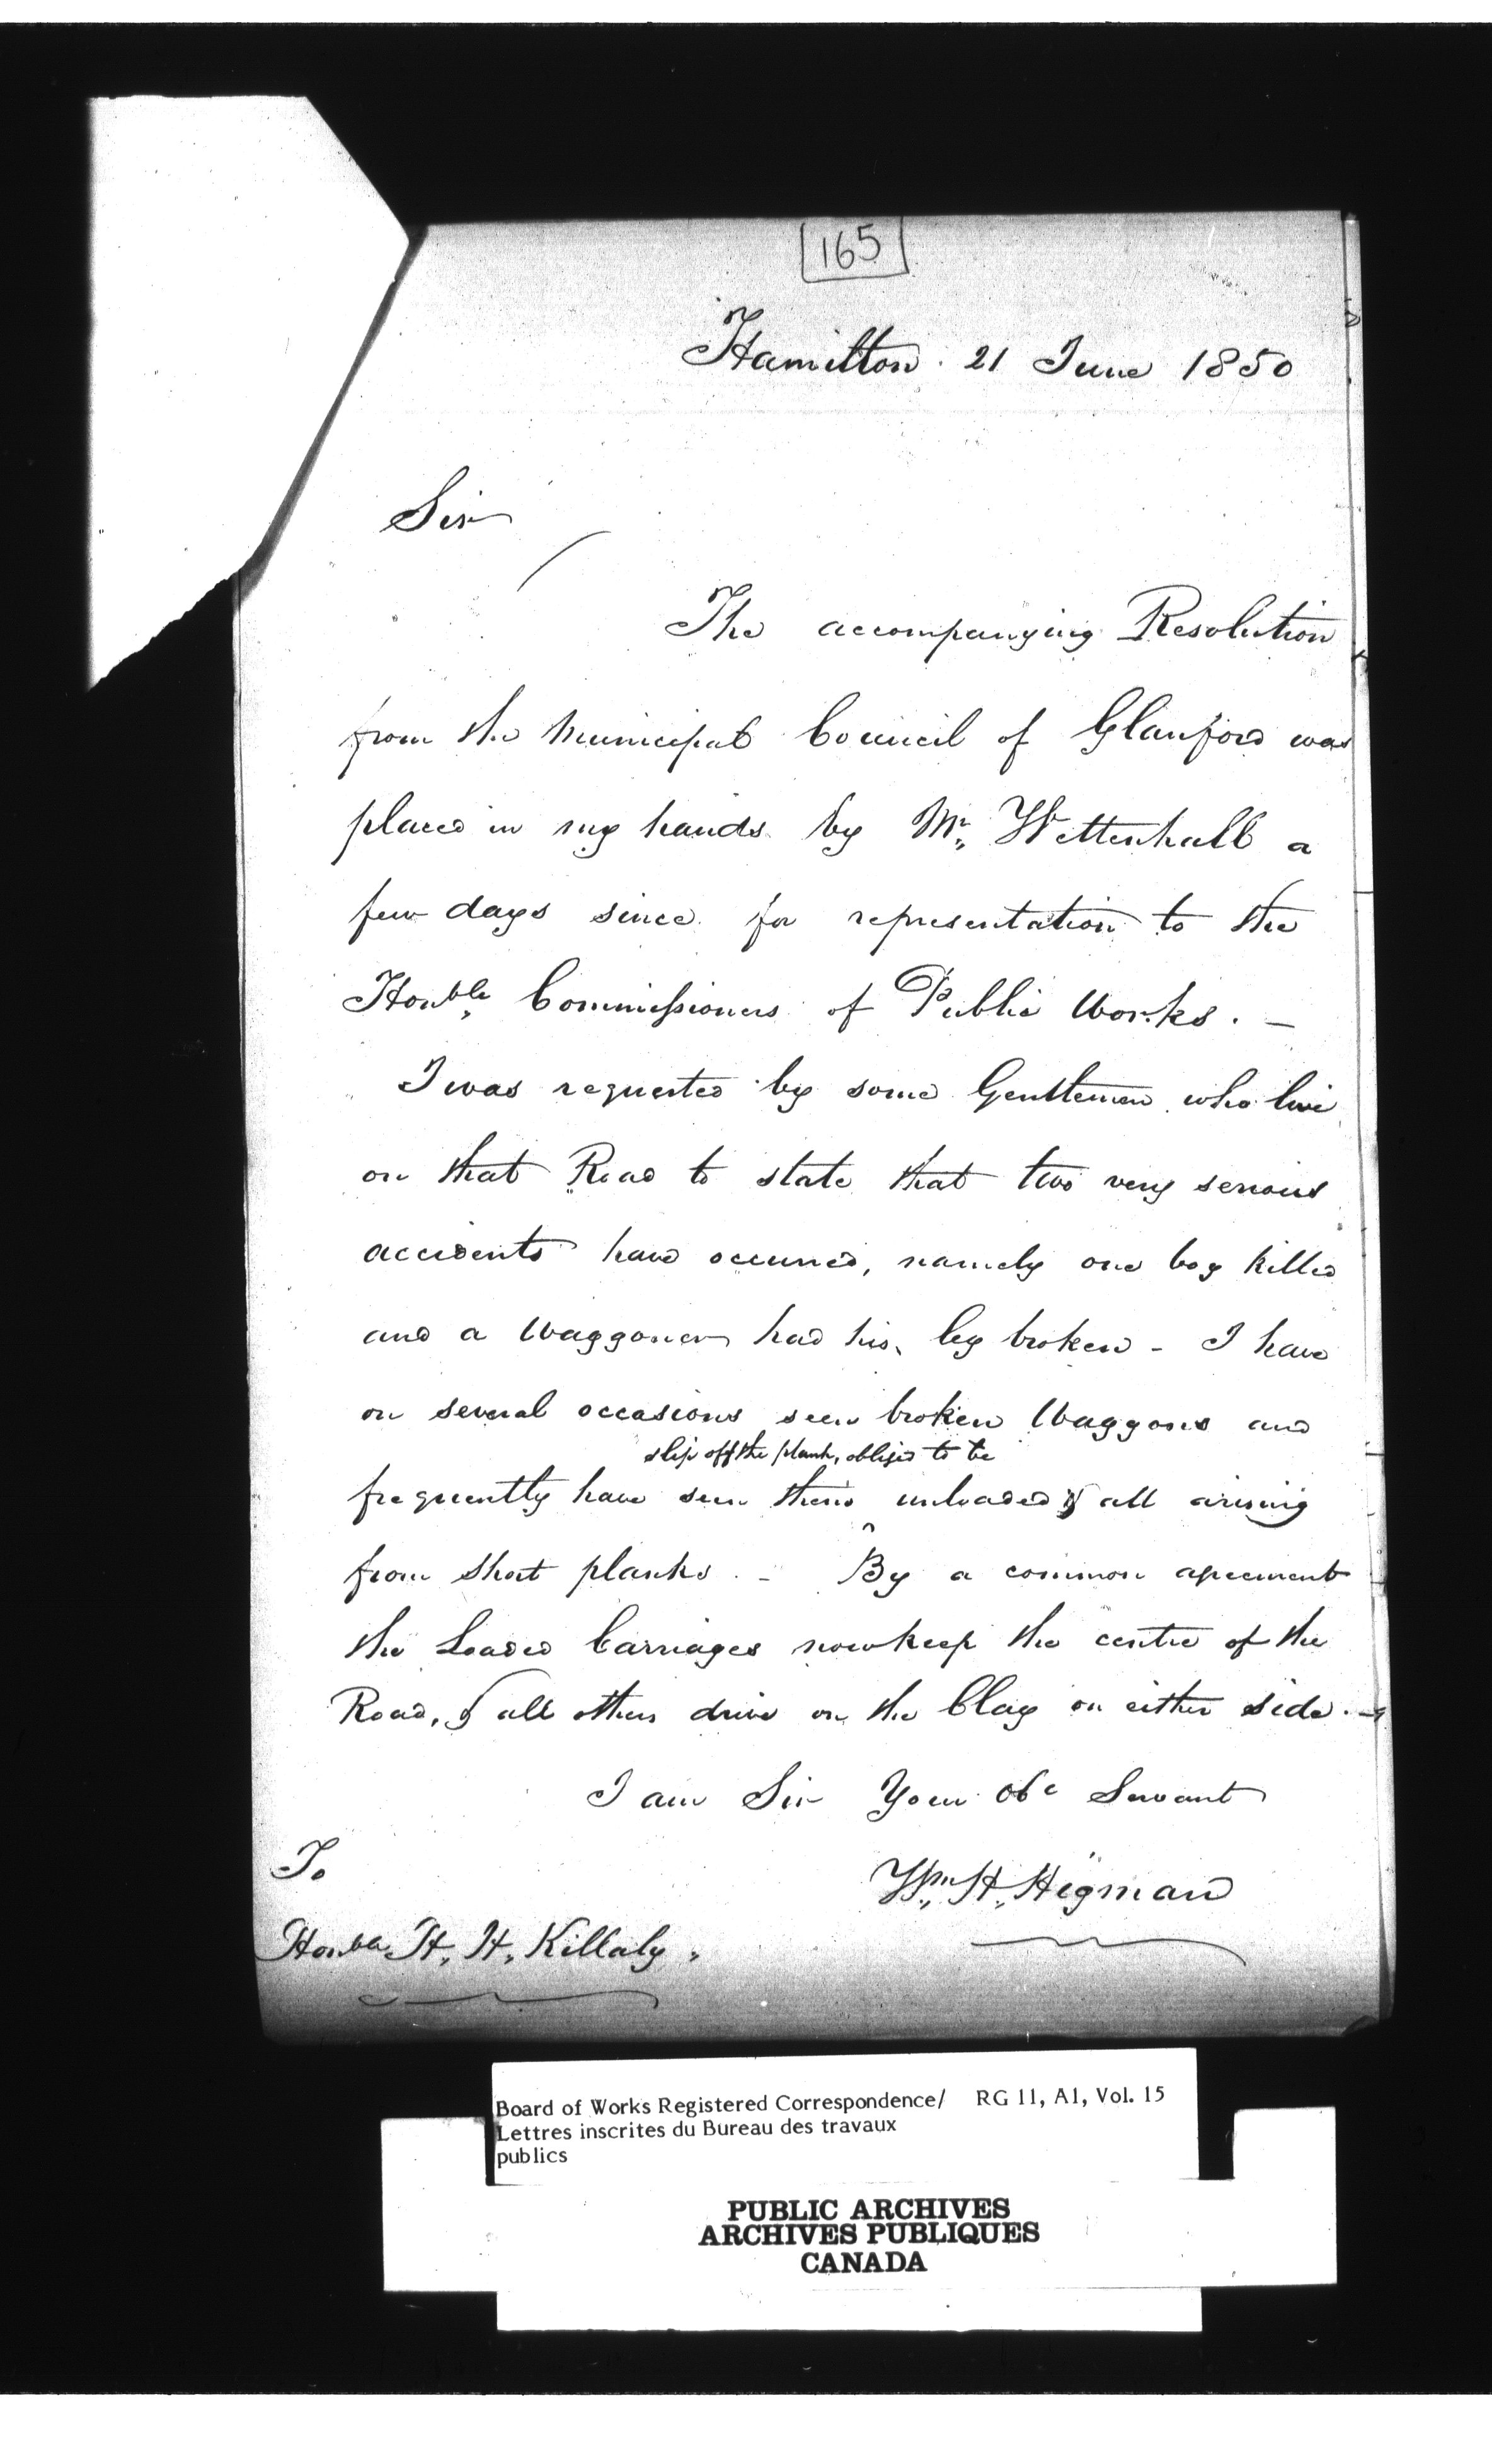 165
Hamilton. 21 June 1850
Sir
The accompanying Resolution
from the Municipal Council of Glanford was
placed in my hands by Mr. Wettenhall a
few days since for representation to the
Honble. Commissioners of Public Works. —
I was requested by some Gentlemen who live
on that Road to state that two very serious
accidents have occurred, namely one boy killed
and a Waggoner had his leg broken - I have
on several occasions seen broken Waggons and
slip off the plank, obliged to be
frequently have seen them unloaded & all arising
from short planks. - By a common agreement
the Loaded Carriages now keep the centre of the
Road, & all others drive on the Clay on either side. -
I am Sir Your Obt Servant
Wm. H. Higman
To
Honble. H. H. Killaly.
Board of Works Registered Correspondence/ RG 11, A1, Vol. 15
Lettres inscrites du Bureau des travaux
publics
PUBLIC ARCHIVES
ARCHIVES PUBLIQUES
CANADA